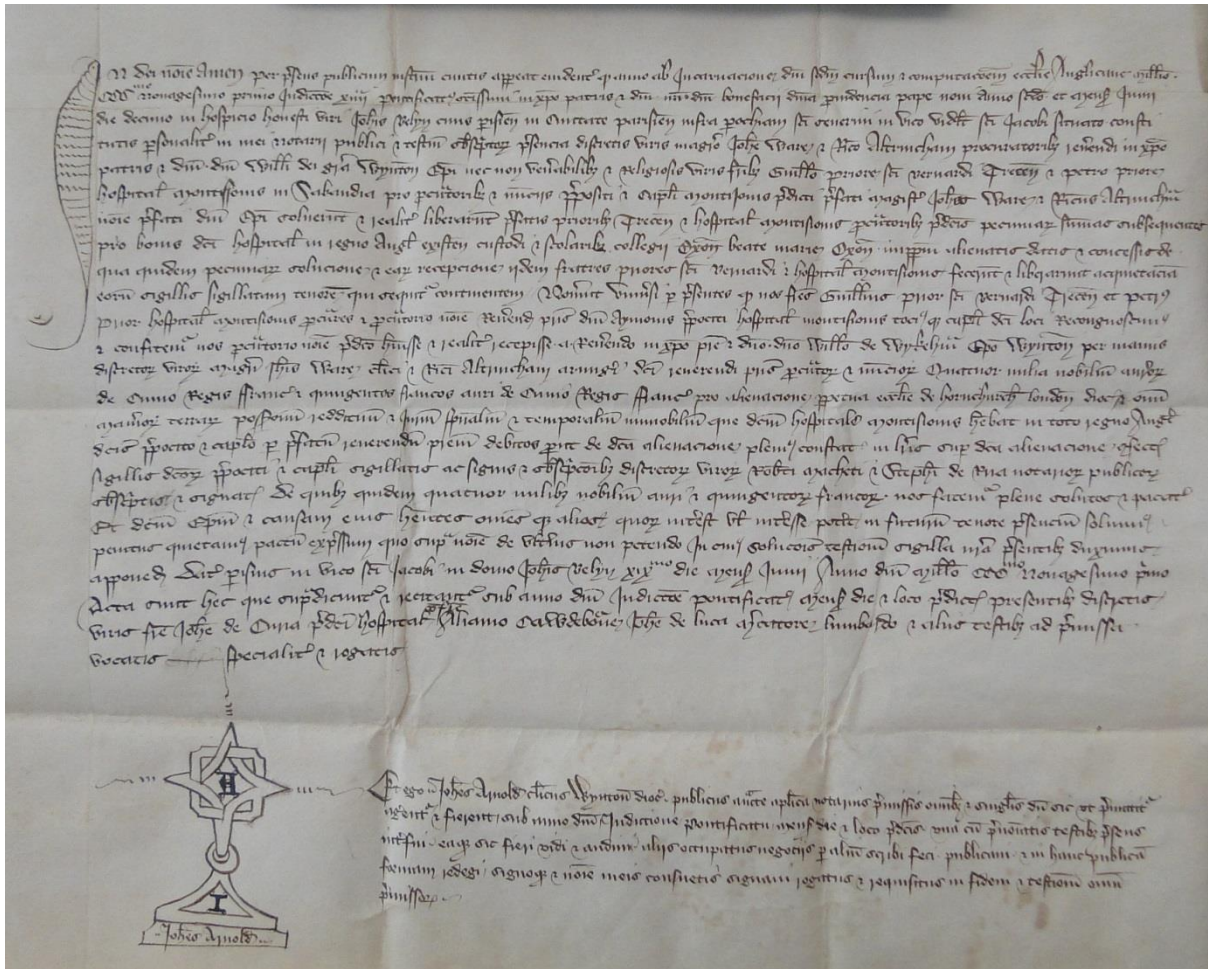 In dei noie Amen per presens publicum instrum cunctis appareat evident qd anno ab Incarnacione dni scdm cursum & computacoem eccl'ie Anglicane millo
CCC mo Nonagesimo primo Indictoe xiiij pontificat sctissimi in xpo patris & dni nri dni bonefacii divina providencia pape noni Anno scdo et mens Junii
die decimo in hospicio honesti viri Johis Velyn civis parisien in Civitate parisien infra parochiam sci Severini in vico videlt sci Jacobi situato consti
tutis personalit in mei notarii publici & testium subscriptor presencia discretis viris magro Johe Ware & Rico Altrincham procuratoribz reverendi in xpo
patris & dni dni Willi dei gra Wynton Epi nec non venerabilibz & religiosis viris fribz Guillo priore sci Bernardi Trecen & petro priore
hospital montisiovis in Sabaudia pro procuratoribz & nunciis prepositi & Capli montisiovis predicti prefati magister Johes Ware & Ricus Altrincham
noie prefati dni Epi solverunt & realit liberarunt prefatis prioribz Trecen & hospital montisiovis procuratoribz predcis pecuniar summas subsequentes
pro bonis dci hospital in regno Angl existen custodi & scolaribz collegii beate marie Oxon imppm alienatis datis & concessis de
qua quidem pecuniar solucione & ear recepcione iidem fratres priores sci Bernardi & hospital montisiovis fecerunt & liberarunt acquietanciam
eorum sigillis sigillatam tenorem qui sequit continentem Noverint universi p presentes qd nos fres Guillmus prior sci Bernardi Trecen et petrus
prior hospital montisiovis procurators & procuratorio noie Reverend pris dni Aymonis prepositi hospital montisiovis tociusqz capli dci loci Recognoscimus
& confitemur nos procuratorio noie predco huisse & realit recepisse a Reverendo in xpo pre & dno dno Willo de Wykeham Epo Wynton per manus
discretor viror magri Johis Ware clerici & Rici Altrincham armig dci reverendi pris procurator & nuncior Quatuor milia nobilium auri
de Cunio Regis ffranc & quingentos francos auri de Cunio Regis ffranc pro alienacione perpetua ecclie de hornchurch london dioc & omnium
maneriorum terrar possessionum reddituum & Jurium spualium & temporalium immobilium que dcum hospitale montisiovis hebat in toto regno Angl
dcis preposito & caplo p prefatum reverendum prem debitos prout de dca alienacione plenius constat in lris sup dca alienacione confect
sigillis dcor prepositi & capli sigillatis ac signis & subscripcoibz discretor viror Robti Macheti & Stephi de Rua notarior publicor
subscriptis & signatis De quibz quidem quatuor milibz nobilium auri & quingentor francor nos facemur plene solutos & pacatos
Et dcum Epum & causam eius hentes omes qz alios quor interest vel interesse poterit in futurum tenore presencium solvimus
penitus quietamus pactum expressum quo supra noie de ulterius non petendo In cuius solucois testimonium sigilla nra presentibz duximus
apponend Dat parisius in vico sci Jacobi in domo Johis Velyn xix mo die mens Junii Anno dni millo CCC mo Nonagesimo primo
Acta sunt hec que supradicuntur & recitantur sub anno dni Indictoe pontificat mens die & loco predictis presentibz discretis
viris fre Johe de Curia predci hospital Cawdebeve Johe de luca mercatore lumbardo & aliis testibz ad premissa
vocatis specialit & rogatis
H
I
Johes Arnold
Et ego Johes Arnold clicus Wynton dioc publicus aucte aplica notarius premissis omibz & singlis dum sic ut premittit
agerentur & fierent sub anno dni Indictione pontificatu mens die & loco predcis una cum prenoiatis testibz presens
interfui eaqz sic fieri vidi & audivi aliis occupatus negociis p alium scribi feci publicavi & in hanc publicam
formam redegi signoqz & noie meis consuetis signavi rogatus & requisitus in fidem & testimonium omnium
premissor